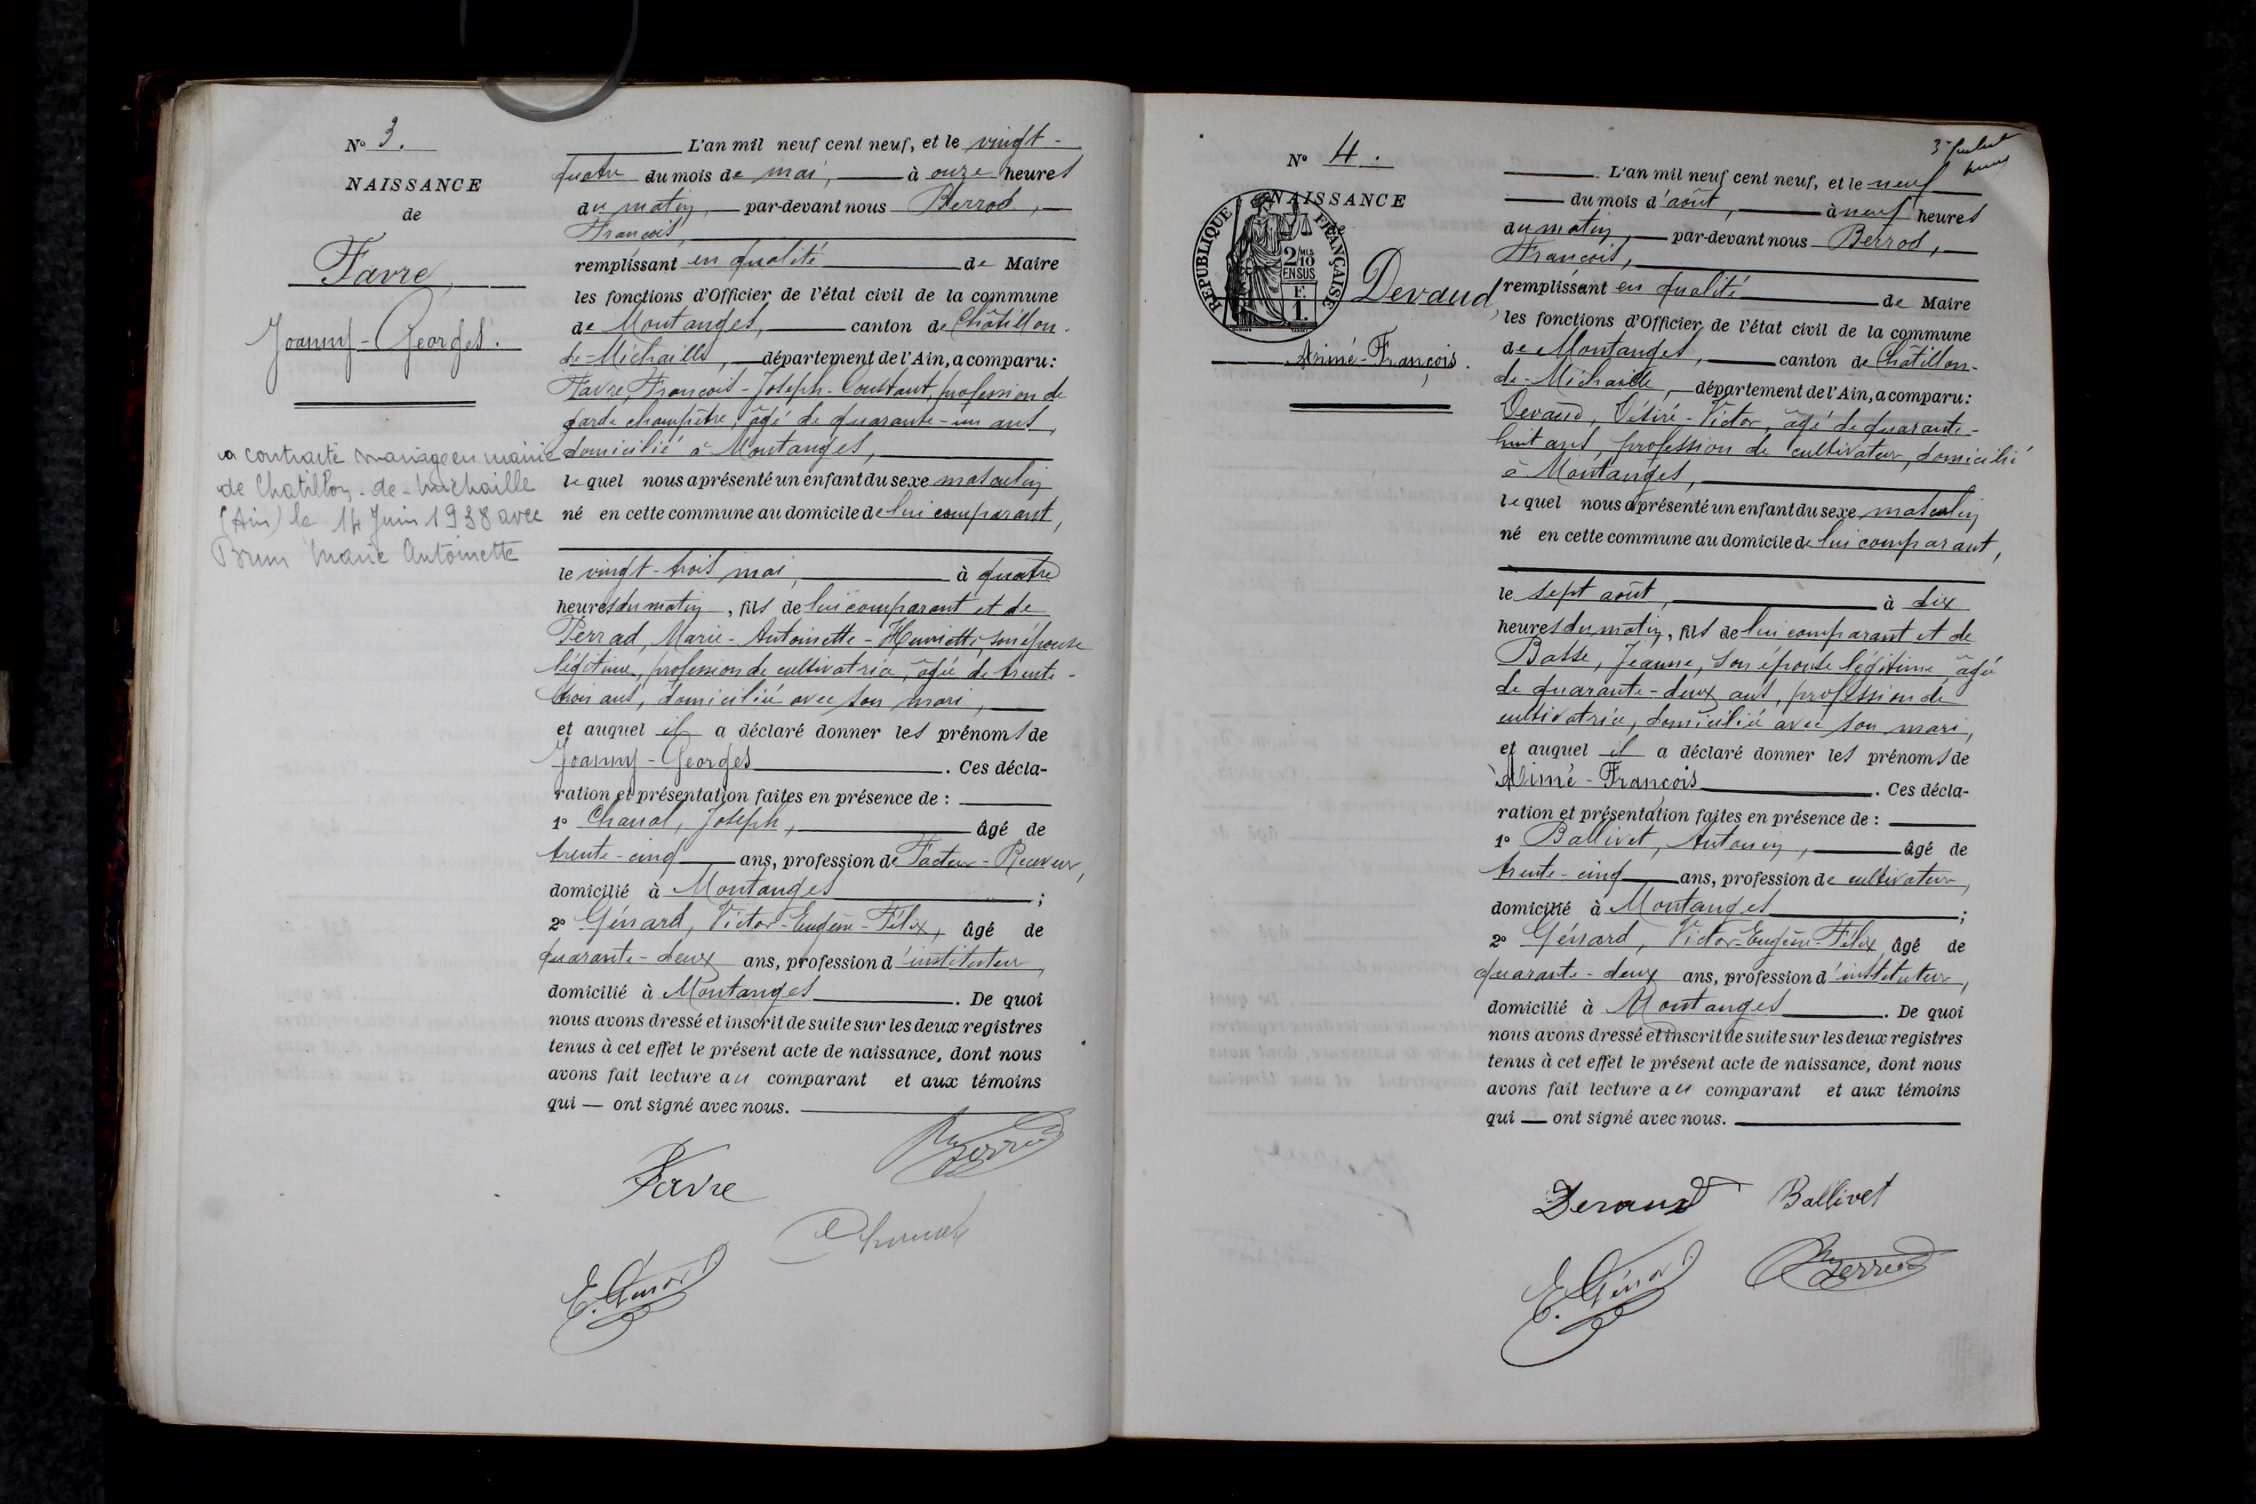 N° 3.
NAISSANCE
de
Favre,
Joanny-Georges.
a contracté mariage en mairie
de Chatillon-de-Michaille
(Ain) le 14 Juin 1938 avec
Brun Marie Antoinette
L'an mil neuf cent neuf, et le vingt-
quatre du mois de mai, à onze heures
du matin, par-devant nous Berrod,
François,
remplissant en qualité de Maire
les fonctions d'Officier de l'état civil de la commune
de Montanges, canton de Châtillon-
de-Michaille, département de l'Ain, a comparu:
Favre, François-Joseph-Constant, profession de
garde champêtre, âgé de quarante-un ans,
domicilié à Montanges,
lequel nous a présenté un enfant du sexe masculin
né en cette commune au domicile de lui comparant,
le vingt-trois mai, à quatre
heures du matin, fils de lui comparant et de
Perrad, Marie-Antoinette-Henriette, son épouse
légitime, profession de cultivatrice, âgée de trente-
trois ans, domiciliée avec son mari,
et auquel il a déclaré donner les prénoms de
Joanny-Georges. Ces décla-
ration et présentation faites en présence de :
1° Chanal, Joseph, âgé de
trente-cinq ans, profession de Facteur-Receveur,
domicilié à Montanges ;
2° Génard, Victor-Eugène-Félix, âgé de
quarante-deux ans, profession d'instituteur,
domicilié à Montanges. De quoi
nous avons dressé et inscrit de suite sur les deux registres
tenus à cet effet le présent acte de naissance, dont nous
avons fait lecture au comparant et aux témoins
qui — ont signé avec nous.
Berrod
Favre
Chanal
E. Génard
N° 4.
NAISSANCE
de
RÉPUBLIQUE FRANÇAISE
2/10 EN SUS
F.
1.
Devaud,
Aimé-François.
L'an mil neuf cent neuf, et le neuf
du mois d'août, à neuf heures
du matin, par-devant nous Berrod,
François,
remplissant en qualité de Maire
les fonctions d'Officier de l'état civil de la commune
de Montanges, canton de Châtillon-
de-Michaille, département de l'Ain, a comparu:
Devaud, Désiré-Victor, âgé de quarante-
huit ans, profession de cultivateur, domicilié
à Montanges,
lequel nous a présenté un enfant du sexe masculin
né en cette commune au domicile de lui comparant,
le sept août, à dix
heures du matin, fils de lui comparant et de
Basse, Jeanne, son épouse légitime, âgée
de quarante-deux ans, profession de
cultivatrice, domiciliée avec son mari,
et auquel il a déclaré donner les prénoms de
Aimé-François. Ces décla-
ration et présentation faites en présence de :
1° Ballivet, Antonin, âgé de
trente-cinq ans, profession de cultivateur,
domicilié à Montanges ;
2° Génard, Victor-Eugène-Félix, âgé de
quarante-deux ans, profession d'instituteur,
domicilié à Montanges. De quoi
nous avons dressé et inscrit de suite sur les deux registres
tenus à cet effet le présent acte de naissance, dont nous
avons fait lecture au comparant et aux témoins
qui — ont signé avec nous.
Devaud Ballivet
E. Génard Berrod